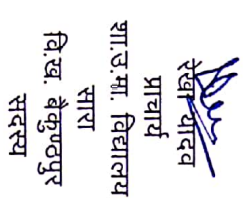 रेखा यादव
प्राचार्य
शा.उ.मा. विद्यालय
सारा
वि.ख. बैकुण्ठपुर
सदस्य